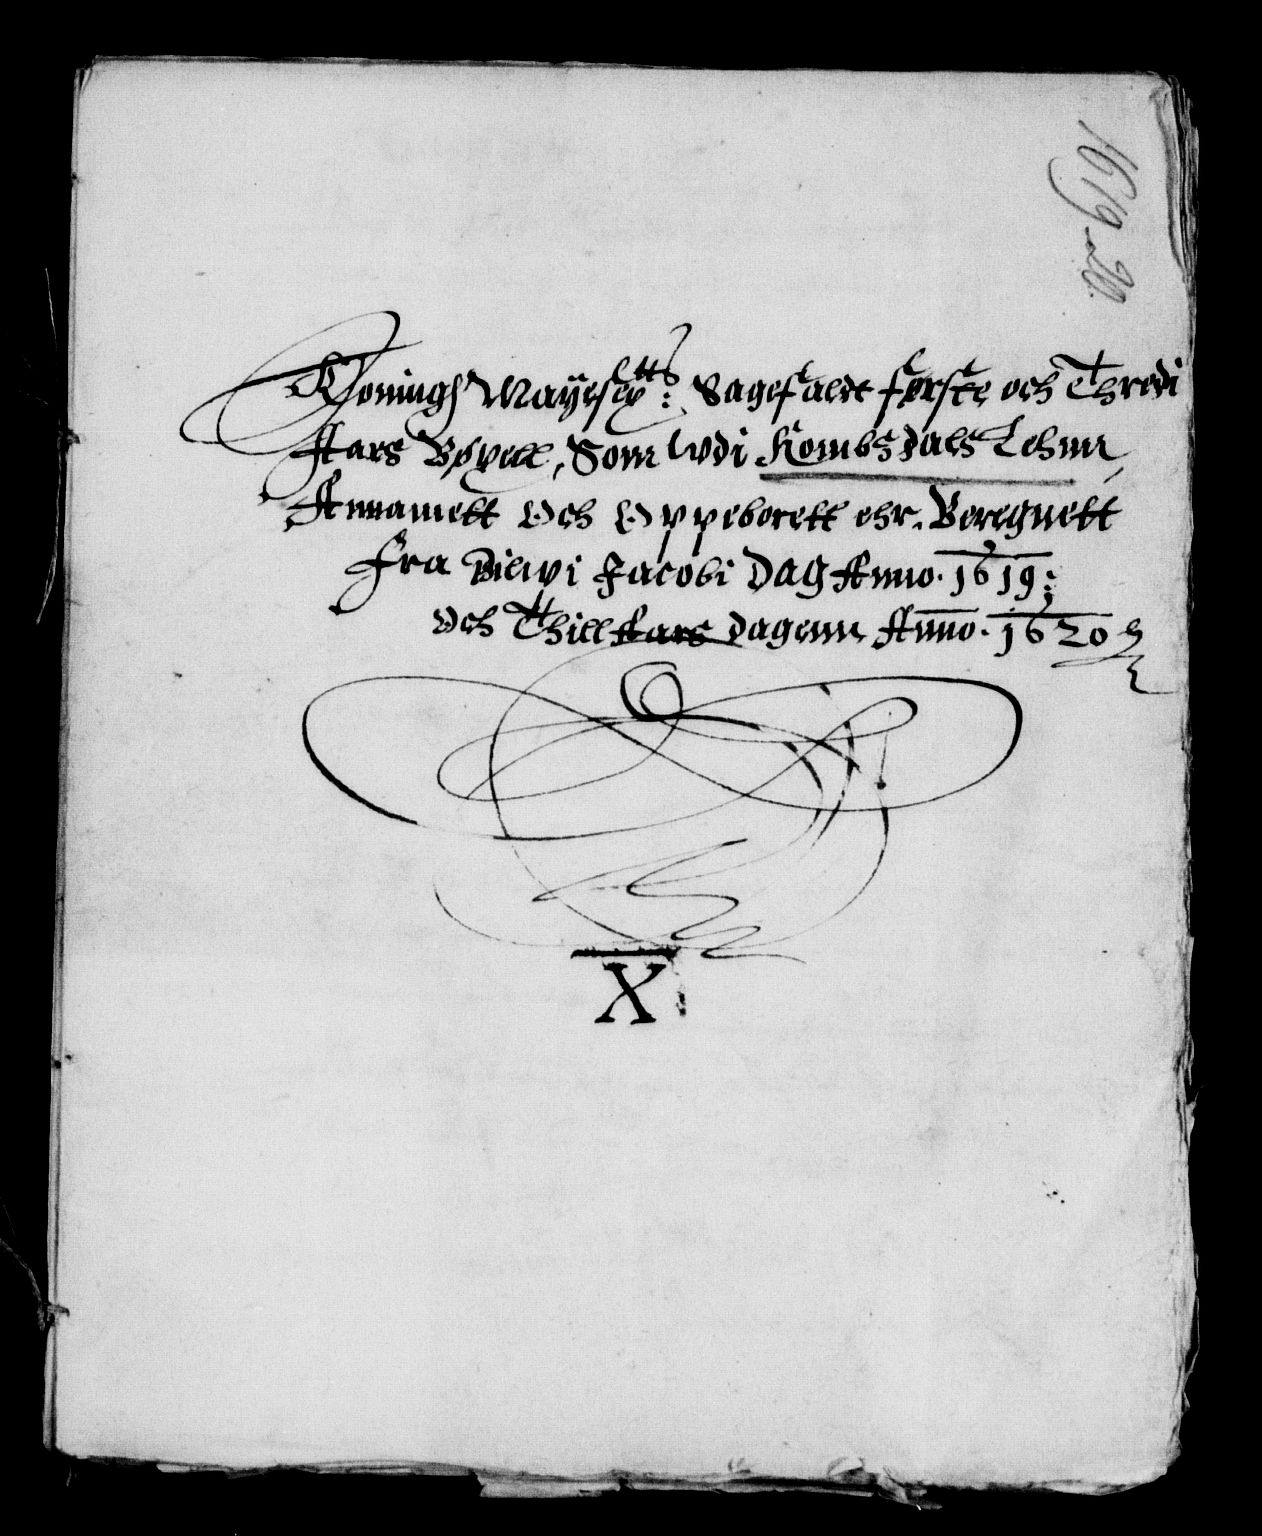 1619 - 20.
Koning: Mayesttts: Sagefaldt første och Thredi
Aars Bøxell, Som Udi Rombsdals Lehnn,
Annamett Och Oppeborett ehr. Beregnett
Fra Divi Jacobi Dag Anno. 1619:
Och Thill Aars dagenn Anno. 1620
X